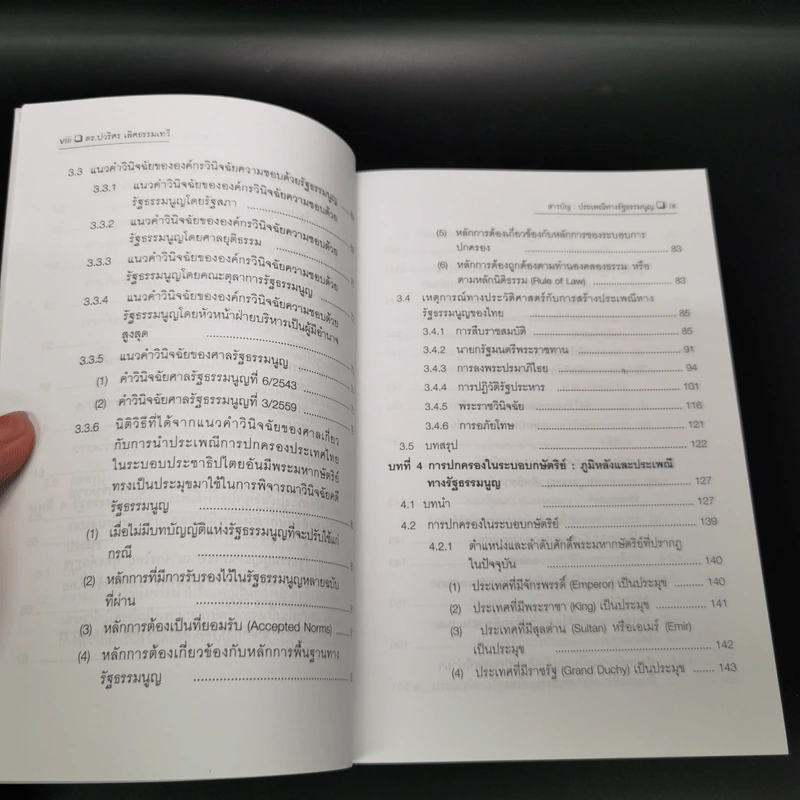 viii ❑ ดร.ปวริศร เลิศธรรมเทวี
3.3 แนวคำวินิจฉัยขององค์กรวินิจฉัยความชอบด้วยรัฐธรรมนูญ
3.3.1 แนวคำวินิจฉัยขององค์กรวินิจฉัยความชอบด้วย
รัฐธรรมนูญโดยรัฐสภา
3.3.2 แนวคำวินิจฉัยขององค์กรวินิจฉัยความชอบด้วย
รัฐธรรมนูญโดยศาลยุติธรรม
3.3.3 แนวคำวินิจฉัยขององค์กรวินิจฉัยความชอบด้วย
รัฐธรรมนูญโดยคณะตุลาการรัฐธรรมนูญ
3.3.4 แนวคำวินิจฉัยขององค์กรวินิจฉัยความชอบด้วย
รัฐธรรมนูญโดยหัวหน้าฝ่ายบริหารเป็นผู้มีอำนาจ
สูงสุด
3.3.5 แนวคำวินิจฉัยของศาลรัฐธรรมนูญ
(1) คำวินิจฉัยศาลรัฐธรรมนูญที่ 6/2543
(2) คำวินิจฉัยศาลรัฐธรรมนูญที่ 3/2559
3.3.6 นิติวิธีที่ได้จากแนวคำวินิจฉัยของศาลเกี่ยว
กับการนำประเพณีการปกครองประเทศไทย
ในระบอบประชาธิปไตยอันมีพระมหากษัตริย์
ทรงเป็นประมุขมาใช้ในการพิจารณาวินิจฉัยคดี
รัฐธรรมนูญ
(1) เมื่อไม่มีบทบัญญัติแห่งรัฐธรรมนูญที่จะปรับใช้แก่
กรณี
(2) หลักการที่มีการรับรองไว้ในรัฐธรรมนูญหลายฉบับ
ที่ผ่าน
(3) หลักการต้องเป็นที่ยอมรับ (Accepted Norms)
(4) หลักการต้องเกี่ยวข้องกับหลักการพื้นฐานทาง
รัฐธรรมนูญ
สารบัญ : ประเพณีทางรัฐธรรมนูญ ❑ ix
(5) หลักการต้องเกี่ยวข้องกับหลักการของระบอบการ
ปกครอง 83
(6) หลักการต้องถูกต้องตามทำนองคลองธรรม หรือ
ตามหลักนิติธรรม (Rule of Law) 83
3.4 เหตุการณ์ทางประวัติศาสตร์กับการสร้างประเพณีทาง
รัฐธรรมนูญของไทย 85
3.4.1 การสืบราชสมบัติ 85
3.4.2 นายกรัฐมนตรีพระราชทาน 91
3.4.3 การลงพระปรมาภิไธย 94
3.4.4 การปฏิวัติรัฐประหาร 101
3.4.5 พระราชวินิจฉัย 116
3.4.6 การอภัยโทษ 121
3.5 บทสรุป 122
บทที่ 4 การปกครองในระบอบกษัตริย์ : ภูมิหลังและประเพณี
ทางรัฐธรรมนูญ 127
4.1 บทนำ 127
4.2 การปกครองในระบอบกษัตริย์ 139
4.2.1 ตำแหน่งและลำดับศักดิ์พระมหากษัตริย์ที่ปรากฏ
ในปัจจุบัน 140
(1) ประเทศที่มีจักรพรรดิ์ (Emperor) เป็นประมุข 140
(2) ประเทศที่มีพระราชา (King) เป็นประมุข 141
(3) ประเทศที่มีสุลต่าน (Sultan) หรือเอเมร์ (Emir)
เป็นประมุข 142
(4) ประเทศที่มีราชรัฐ (Grand Duchy) เป็นประมุข 143